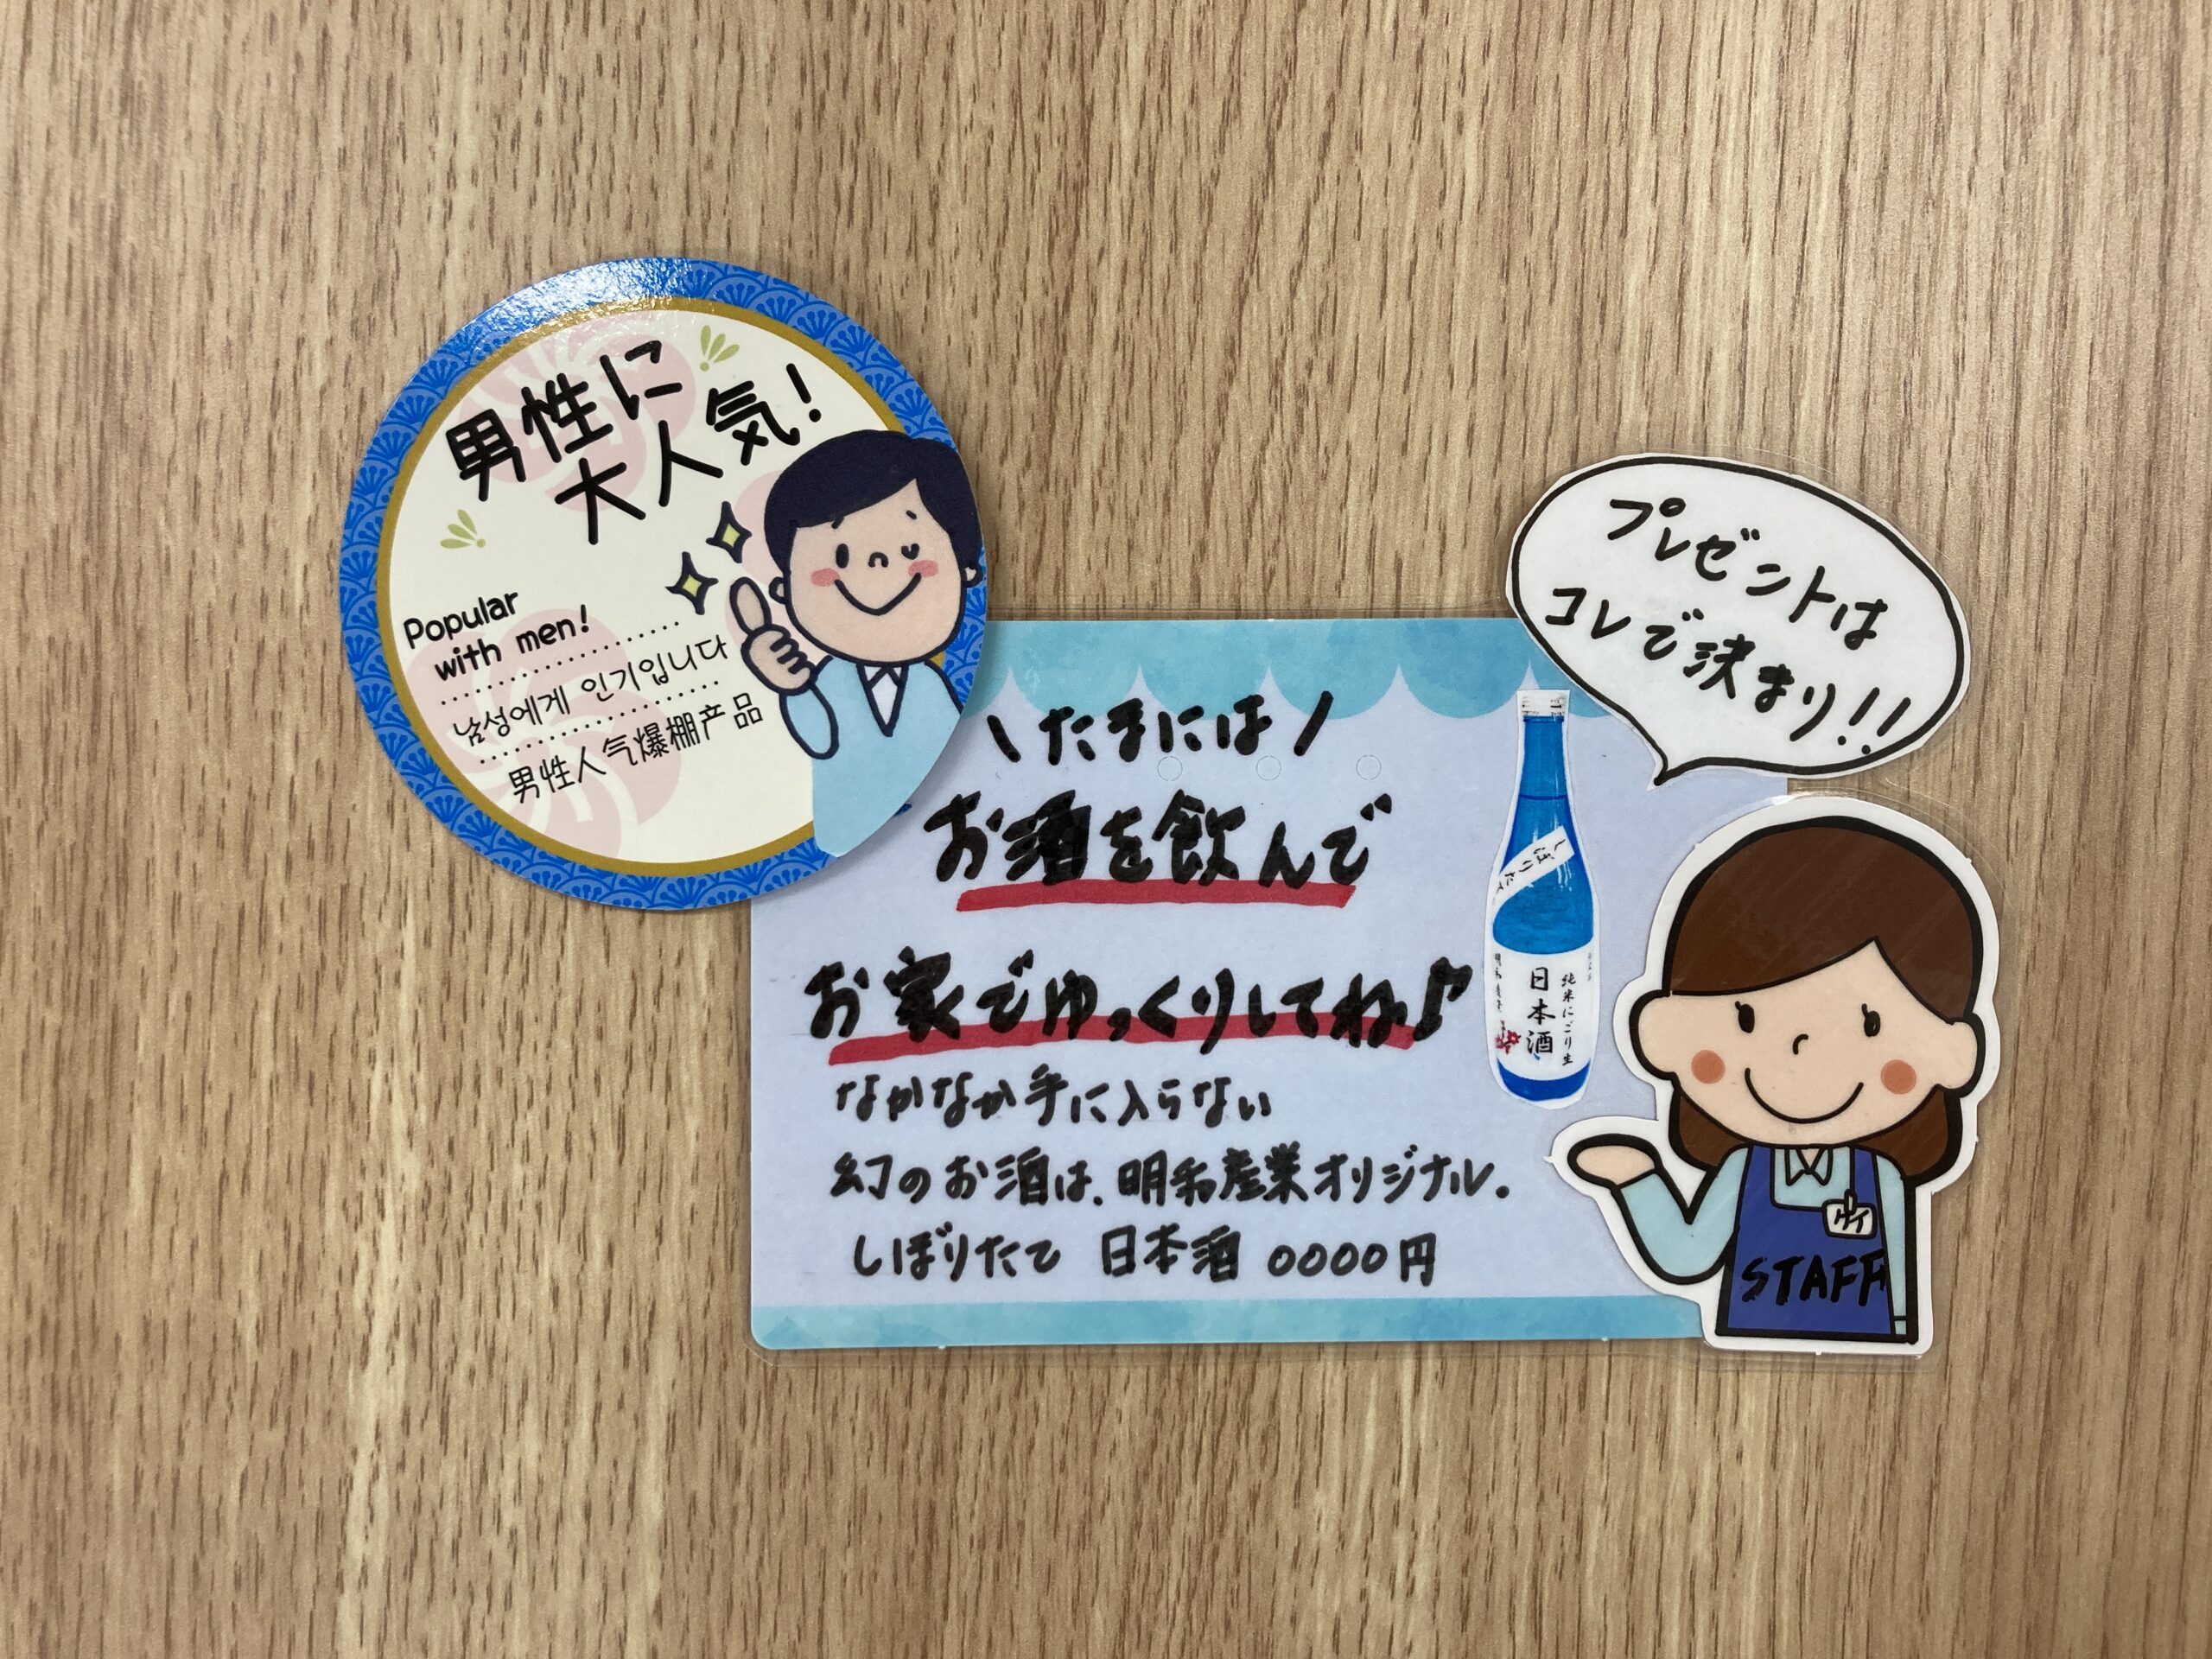 男性に
大人気!
Popular
with men!
남성에게 인기입니다
男性人气爆棚产品
プレゼントは
コレで決まり!!
\たまには/
お酒を飲んで
お家でゆっくりしてね♪
なかなか手に入らない
幻のお酒は、明和産業オリジナル。
しぼりたて 日本酒 0000円
しぼりたて
純米にごり生
日本酒
STAFF